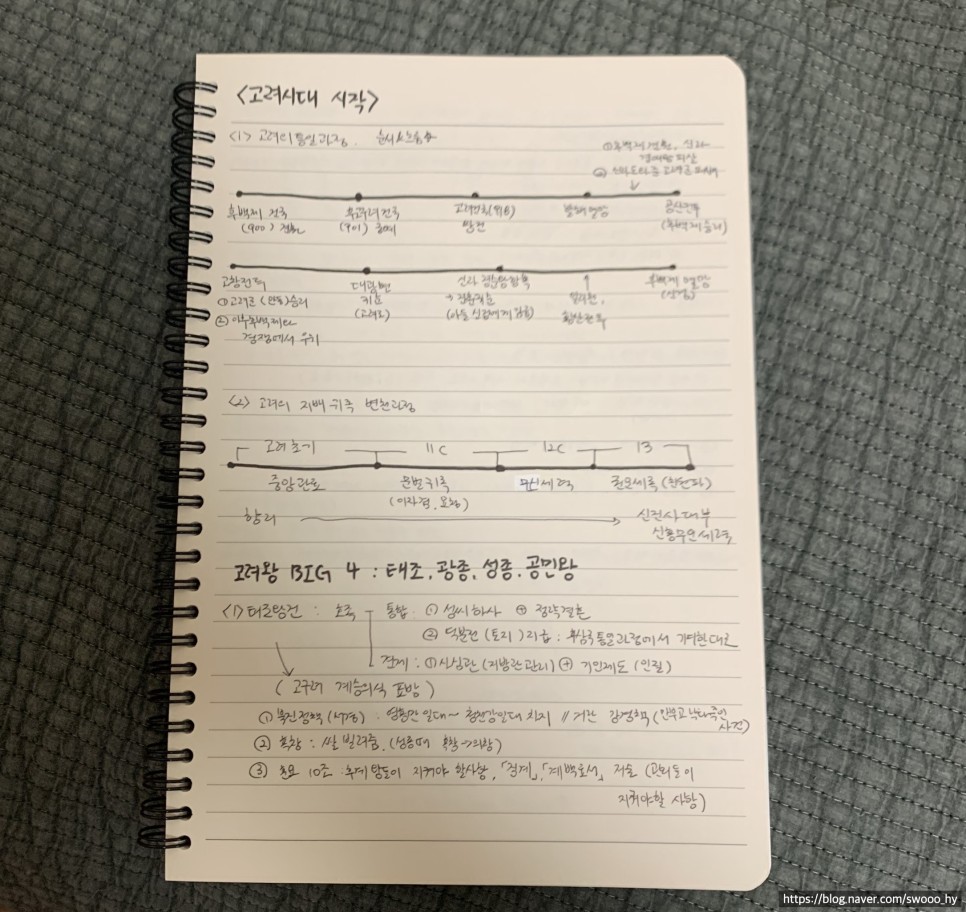 <고려시대 시작>
<1> 고려의 통일과정. 순서 ☆☆☆
① 후백제 견훤, 신라
② 신라 도와준 고려로
후백제 건국 후고구려 건국 고려건국(918) 발해멸망 공산전투
(900) 견훤 (901) 궁예 왕건 (후백제 승리)
고창전투 대광현 신라 경순왕 항복 후백제 멸망
① 고려로 (안동) 승리 귀순 → 견훤귀순 일리천, (신검)
② 이후 후백제와 (고려로) (아들 신검에게 ) 황산전투
경쟁에서 우위
<2> 고려의 지배 귀족 변천과정
고려초기 11C 12C 13
중앙관료 문벌귀족 무신세력 권문세족 (친원파)
(이자겸, 묘청)
향리 → 신진사대부
신흥무인세력
고려왕 BIG 4 : 태조, 광종, 성종, 공민왕
<1> 태조왕건 : 호족 통합 : ① 성씨하사 ⊕ 정략결혼
② 역분전 (토지) 지급 : 후삼국통일과정에서 기여한대로
견제 : ① 사심관 (지방관 관리) ⊕ 기인제도 (인질)
( 고구려 계승의식 표방 )
① 북진정책 (서경) : 영흥만 일대 ~ 청천강일대 차지 // 거란 강경책 (만부교 낙타죽인
사건)
② 흑창 : 쌀 빌려줌. (성종때 흑창→의창)
③ 훈요 10조 : 후대 왕들이 지켜야 할사항, 「정계」, 「계백료서」 저술 (관리들이
지켜야할 사항)
https://blog.naver.com/swooo_hy